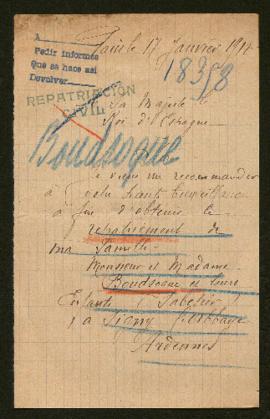 A
Pedir informes
Que se hace asi
Devolver
Paris le 17 Janvier 191
18358
REPATRIACIÓN
CIVIL
Sa Majesté le
Roi d'Espagne
Boudsoque
Je viens me recommander
à votre haute bienveillance
à fin d'obtenir le
rapatriement de
ma famille
Monsieur et Madame
Boudsoque et leurs
Enfants
à Signy l'abbaye
Ardennes